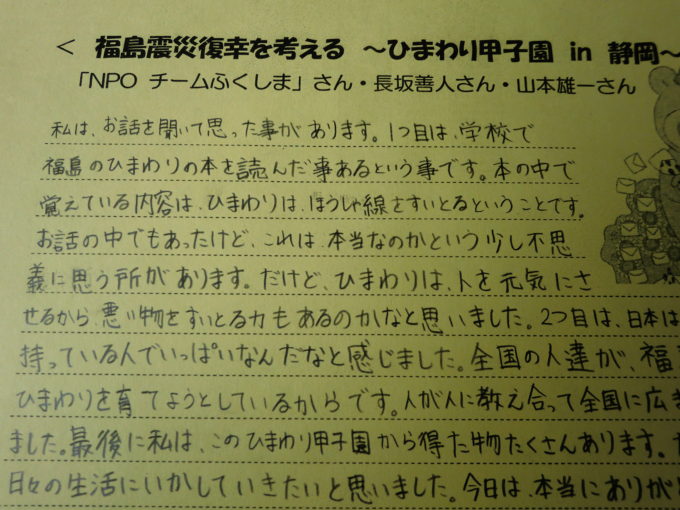 ＜ 福島震災復幸を考える ～ひまわり甲子園 in 静岡～
「NPO チームふくしま」さん・長坂善人さん・山本雄一さん
私は、お話を聞いて思った事があります。1つ目は、学校で
福島のひまわりの本を読んだ事あるという事です。本の中で
覚えている内容は、ひまわりは、ほうしゃ線をすいとるということです。
お話の中でもあったけど、これは、本当なのかという少し不思
義に思う所があります。だけど、ひまわりは、人を元気にさ
せるから、悪い物をすいとる力もあるのかなと思いました。2つ目は、日本は
持っている人でいっぱいなんだなと感じました。全国の人達が、福
ひまわりを育てようとしているからです。人が人に教え合って全国に広ま
ました。最後に私は、このひまわり甲子園から得た物たくさんあります。
日々の生活にいかしていきたいと思いました。今日は、本当にありが